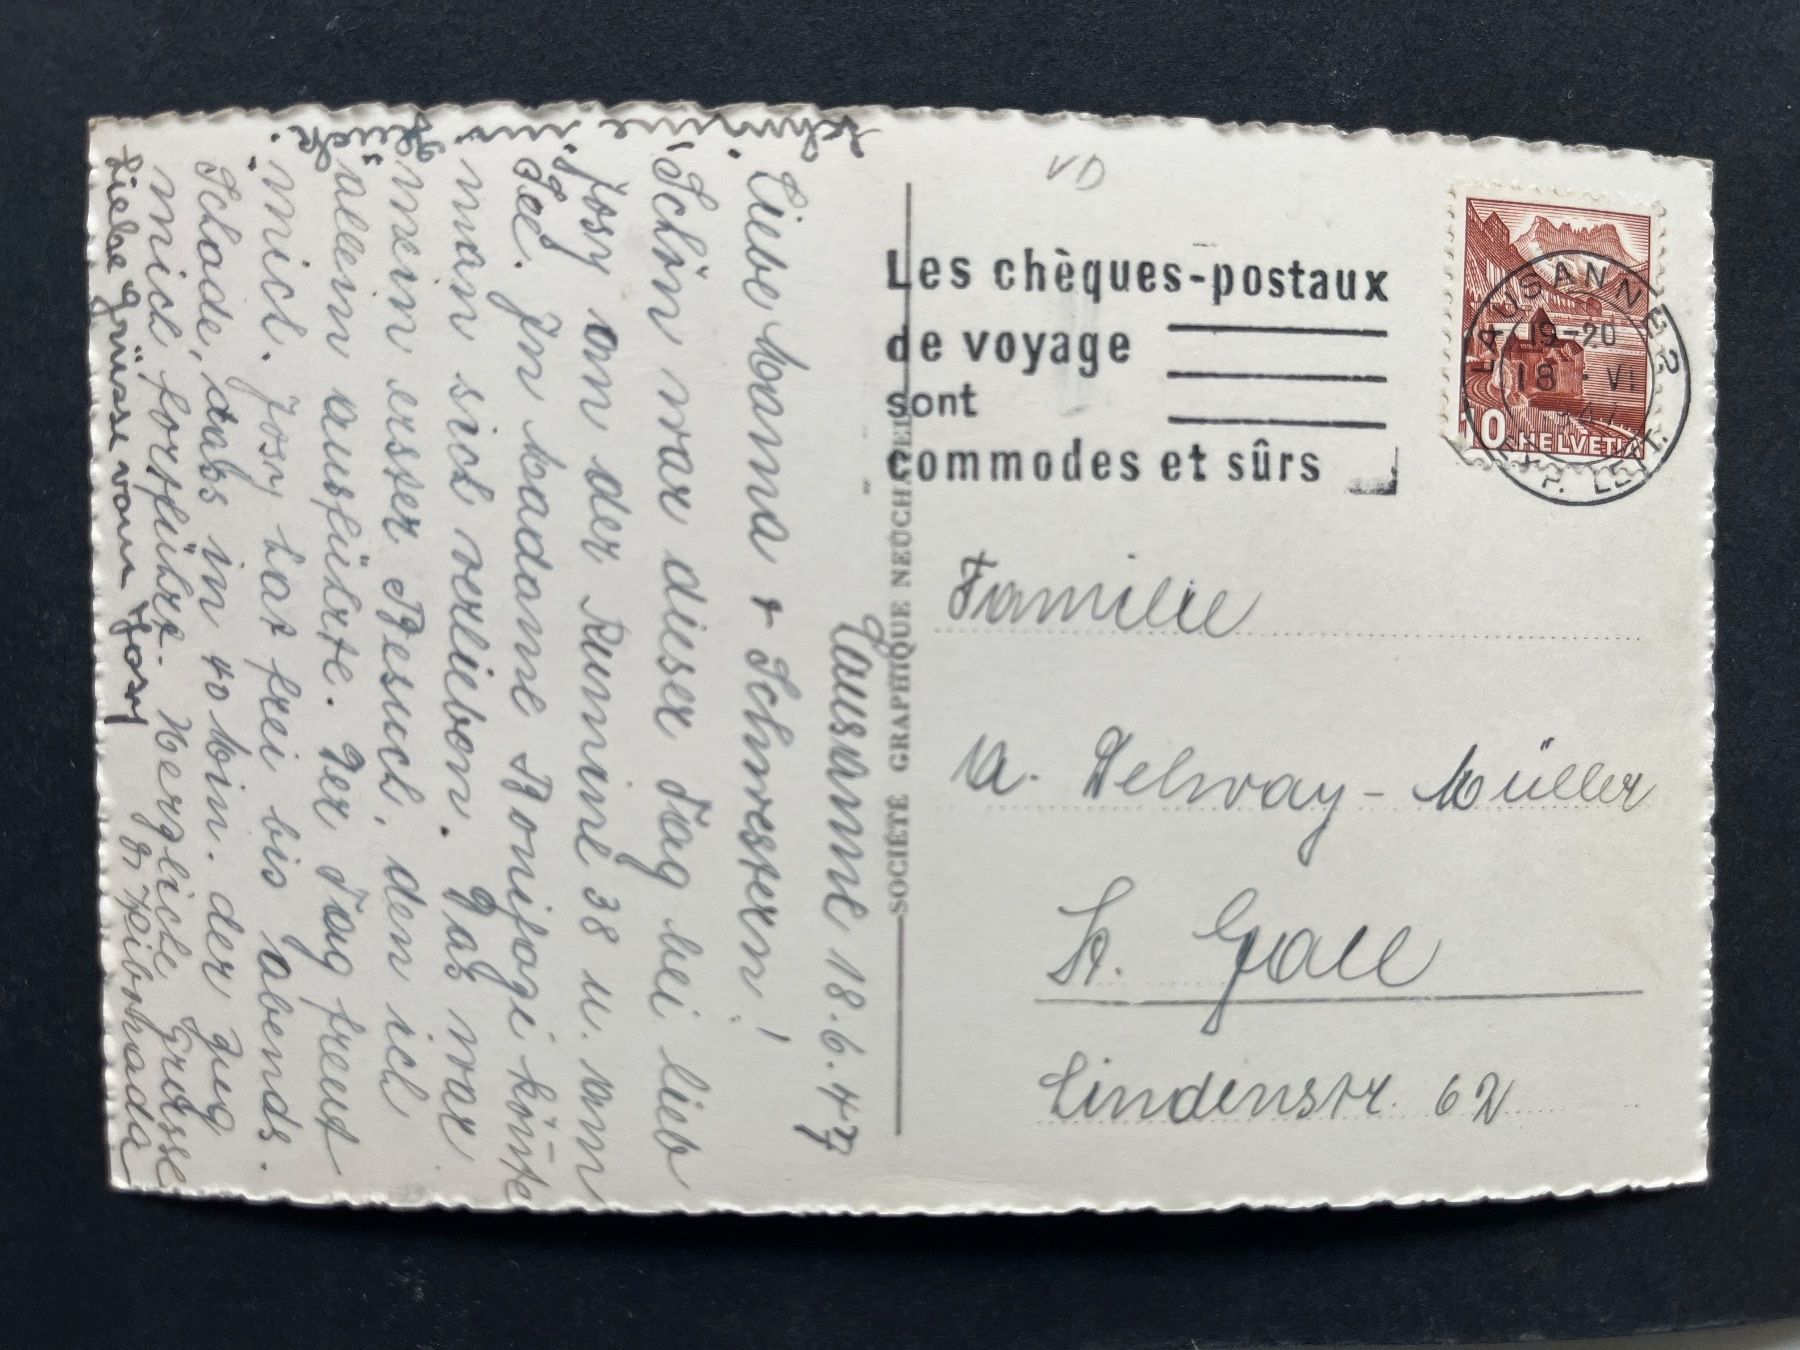 Lausanne 18.6.47
Liebe Mama + Schwestern!
Schön war dieser Tag bei lieb
Josy an der Rumine 38 u. am
See. In Madame Bonifagi könnte
man sich verlieben. Das war
mein erster Besuch, den ich
allein ausführte. Der Tag freut
mich. Josy hat frei bis abends.
Schade, dass in 40 Min. der Zug
mich fortführt. Herzliche Grüsse
Liebe Grüsse vom Josy
VD
Les chèques-postaux
de voyage
sont
commodes et sûrs
HELVETIA
10
LAUSANNE 2
19-20
18.VI.
EXP. LETT.
SOCIÉTÉ GRAPHIQUE NEUCHATEL
Familie
A. Delway-Müller
St. Gall
Lindenstr. 62